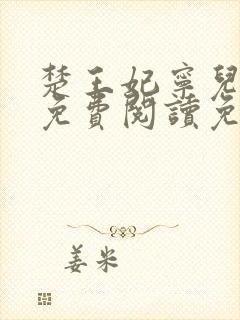 楚王妃寧兒
免費閱讀免
姜米